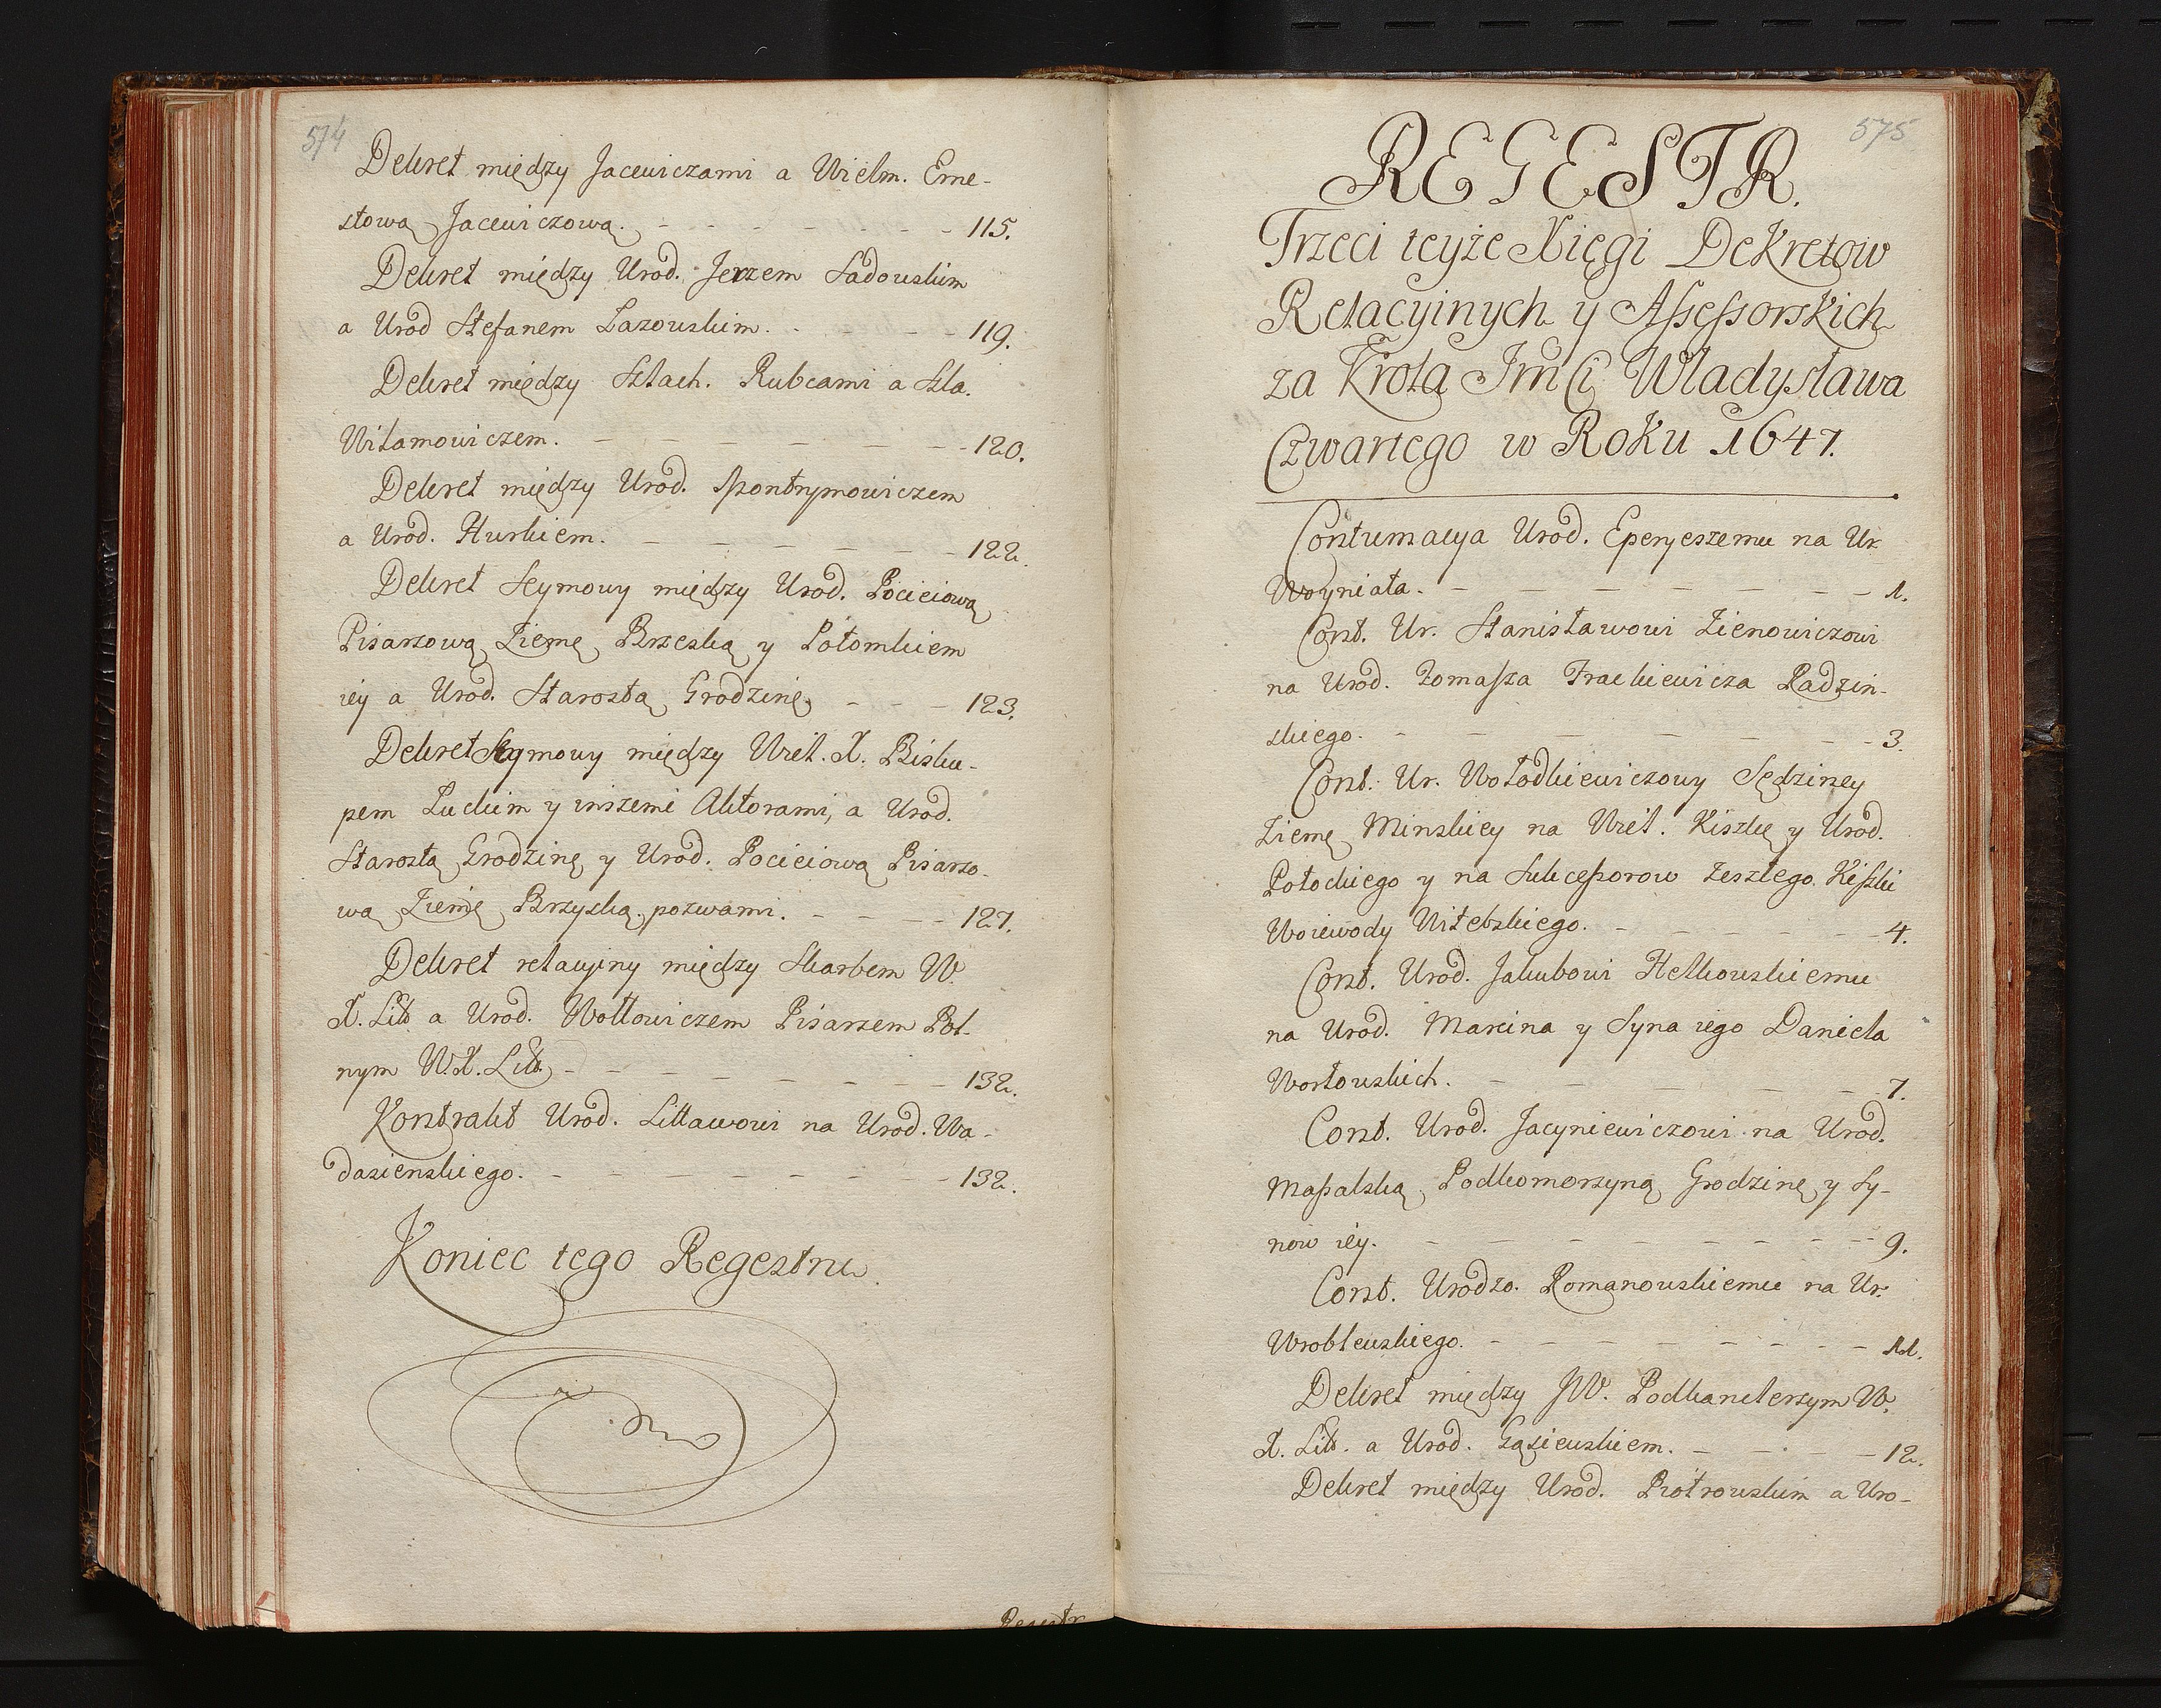 574
Dekret między Jacewiczami a Wielm. Erne-
stową Jacewiczową. - - - - - - - 115.
Dekret między Urod. Jerzem Sadowskim
a Urod Stefanem Łazowskim. - - - - 119.
Dekret między Szlach. Rubcami a Szla.
Witamowiczem. - - - - - - - 120.
Dekret między Urod. Spontrymowiczem
a Urod. Hurkiem. - - - - - - - 122.
Dekret Seymowy między Urod. Pocieiową
Pisarzową Ziemę Brzeską y Potomkiem
iey a Urod. Starostą Grodzinę - - - 123.
Dekret Seymowy między Wiel. X. Bisku-
pem Luckim y inszemi Aktorami, a Urod.
Starostą Grodzinę y Urod. Pocieiową Pisarzo-
wą Ziemę Brzyską pozwami. - - - - 127.
Dekret relacyiny między Skarbem W.
X. Litt a Urod. Wołłowiczem Pisarzem Pol-
nym W.X. Litt. - - - - - - - 132.
Kontrakt Urod. Littaworowi na Urod. Wa-
dasienskiego. - - - - - - - 132.
Koniec tego Regestru.
Regestr
575
REGESTR.
Trzeci teyże Xięgi Dekretow
Relacyinych y Assessorskich
za Krola Jm Ci Władysława
Czwartego w Roku 1647.
Contumacya Urod. Eperyeszemu na Ur.
Woyniata. - - - - - - - 1.
Cont. Ur. Stanisławowi Zienowiczowi
na Urod. Tomasza Frackiewicza Radzin-
skiego. - - - - - - - 3.
Cont. Ur. Wołodkiewiczowy Sędziney
Ziemę Minskiey na Wiel. Kiszkę y Urod.
Potockiego y na Sukcessorow Zeszłego Kiszki
Woiewody Witebskiego. - - - - - - 4.
Cont. Urod. Jakubowi Helkowskiemu
na Urod. Marcina y Syna iego Daniela
Worłowskich. - - - - - 7.
Cont. Urod. Jacyniewiczowi na Urod.
Massalską Podkomorzyną Grodzinę y Sy-
now iey. - - - - - - - - 9.
Cont. Urodzo. Romanowskiemu na Ur.
Wroblewskiego. - - - - - - - - 11.
Dekret między JW. Podkanclerzym W.
X. Litt. a Urod. Gąsiewskiem. - - - - 12.
Dekret między Urod. Piotrowskim a Uro-